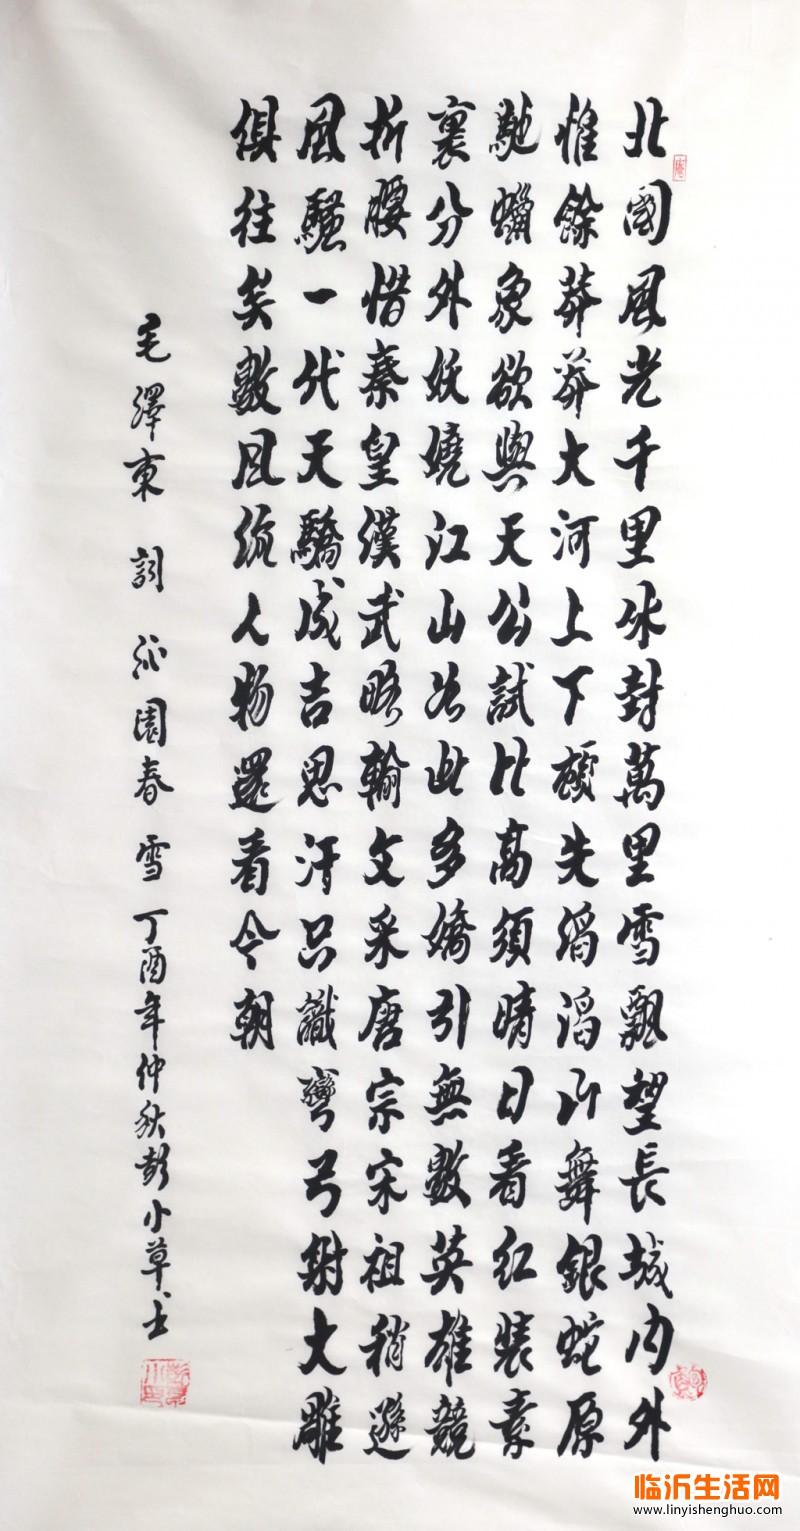 北國風光千里冰封萬里雪飄望長城内外
惟餘莽莽大河上下頓失滔滔山舞銀蛇原
馳蠟象欲與天公試比高須晴日看紅裝素
裏分外妖嬈江山如此多嬌引無數英雄競
折腰惜秦皇漢武略輸文采唐宗宋祖稍遜
風騷一代天驕成吉思汗只識彎弓射大雕
俱往矣數風流人物還看今朝
毛澤東 詞 沁園春 雪 丁酉年仲秋彭小草书
临沂生活网
www.linyishenghuo.com